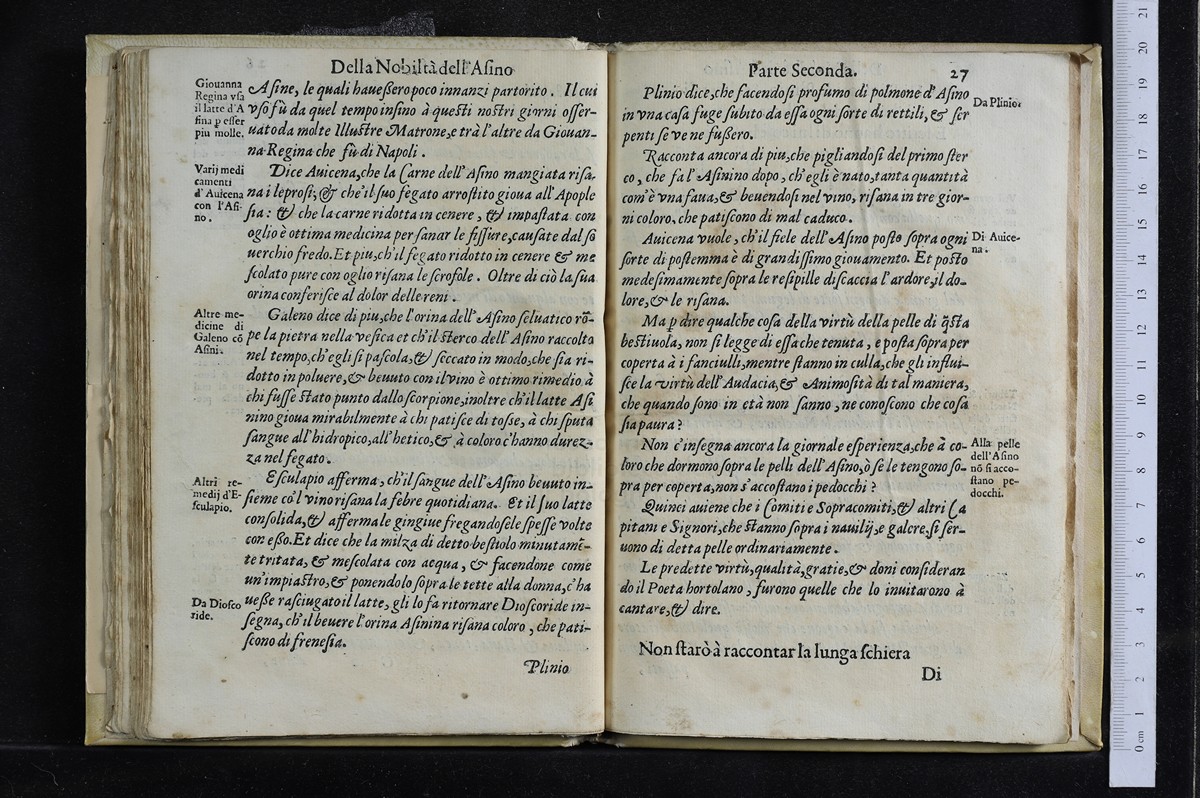 Della Nobiltà dell'Asino
Giouanna
Regina vsa
il latte d'A
sina p esser
piu molle.
Asine, le quali haueßero poco innanzi partorito. Il cui
vso fù da quel tempo insino à questi nostri giorni osser-
uato da molte Illustre Matrone, e trà l'altre da Giouan-
na Regina che fù di Napoli.
Varij medi
camenti
d'Auicena
con l'Asi-
no.
Dice Auicena, che la Carne dell'Asino mangiata risa-
na i leprosi; & che'il suo fegato arrostito gioua all'Apople
sia: & che la carne ridotta in cenere, & impastata con
oglio è ottima medicina per sanar le fissure, causate dal só
uerchio fredo. Et piu, ch'il fegato ridotto in cenere & me
scolato pure con oglio risana le scrofole. Oltre di ciò la sua
orina conferisce al dolor delle reni.
Altre me-
dicine di
Galeno cõ
Asini.
Galeno dice di piu, che l'orina dell'Asino seluatico rõ-
pe la pietra nella vesica et ch'il sterco dell'Asino raccolto
nel tempo, ch'egli si pascola, & seccato in modo, che sia ri-
dotto in poluere, & beuuto con il vino è ottimo rimedio à
chi fusse stato punto dallo scorpione, inoltre ch'il latte Asi
nino gioua mirabilmente à chi patisce di tosse, à chi sputa
sangue all'hidropico, all'hetico, & à coloro c'hanno durez-
za nel fegato.
Altri re-
medij d'E-
sculapio.
Esculapio afferma, ch'il sangue dell'Asino beuuto in-
sieme co'l vino risana la febre quotidiana. Et il suo latte
consolida, & afferma le gingiue fregandosele spesse volte
con eßo. Et dice che la milza di detto bestiolo minutamẽ-
te tritata, & mescolata con acqua, & facendone come
un'impiastro, & ponendolo sopra le tette alla donna, c'ha
Da Diosco
ride.
ueße rasciugato il latte, gli lo fa ritornare Dioscoride in-
segna, ch'il beuere l'orina Asinina risana coloro, che pati-
scono di frenesia.
Plinio
Parte Seconda. 27
Plinio dice, che facendosi profumo di polmone d'Asino
in vna casa fuge subito da essa ogni sorte di rettili, & ser
penti se ve ne fußero.
Da Plinio.
Racconta ancora di piu, che pigliandosi del primo ster
co, che fa l'Asinino dopo, ch'egli è nato, tanta quantità
com'è vna faua, & beuendosi nel vino, risana in tre gior-
ni coloro, che patiscono di mal caduco.
Auicena vuole, ch'il fiele dell'Asino posto sopra ogni
sorte di postemma è di grandissimo giouamento. Et posto
medesimamente sopra le resipille discaccia l'ardore, il do-
lore, & le risana.
Di Auice-
na.
Ma p dire qualche cosa della virtù della pelle di q̃sta
bestiuola, non si legge di essa che tenuta, e posta sopra per
coperta à i fanciulli, mentre stanno in culla, che gli influi-
sce la virtù dell'Audacia, & Animosità di tal maniera,
che quando sono in età non sanno, ne conoscono che cosa
sia paura?
Non c'insegna ancora la giornale esperienza, che à co-
loro che dormono sopra le pelli dell'Asino, ò se le tengono so-
pra per coperta, non s'accostano i pedocchi?
Alla pelle
dell'Asino
nõ si acco-
stano pe-
docchi.
Quinci auiene che i Comiti e Sopracomiti, & altri Ca
pitani e Signori, che stanno sopra i nauilij, e galere, si ser-
uono di detta pelle ordinariamente.
Le predette virtù, qualità, gratie, & doni consideran
do il Poeta hortolano, furono quelle che lo inuitarono à
cantare, & dire.
Non starò à raccontar la lunga schiera
Di